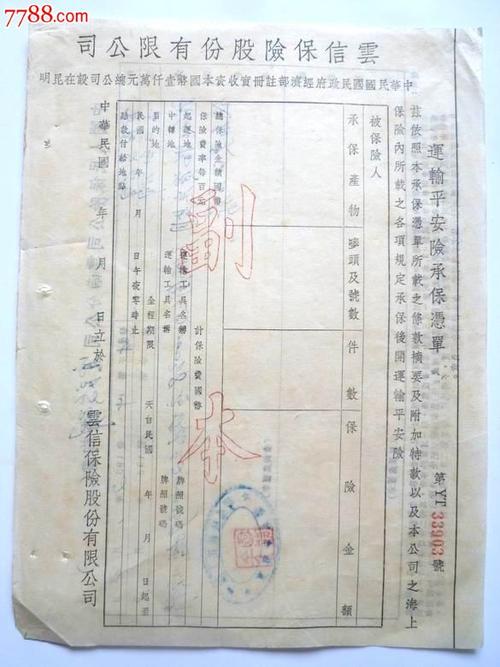 7788.com
雲信保險股份有限公司
中華民國國民政府經濟部註冊實收資本國幣壹仟萬元總公司設在昆明
運輸平安險承保憑單
第YT 33903號
茲依照本承保憑單所載之條款摘要及附加特款以及本公司之海上
保險內所載之各項規定承保後開運輸平安險
被保險人
承保產物
嘜頭及號數
件數
保險金額
副本
總保險金額國幣
保險費率每百元
計保險費國幣
起運地
運輸工具名稱
牌照號碼
中轉地
運輸工具名稱
牌照號碼
目的地
全程期限
天自民國 年 月 日起至
民國 年 月 日午夜零時止
賠款付給地點
中華民國 年 月 日立於
雲信保險股份有限公司